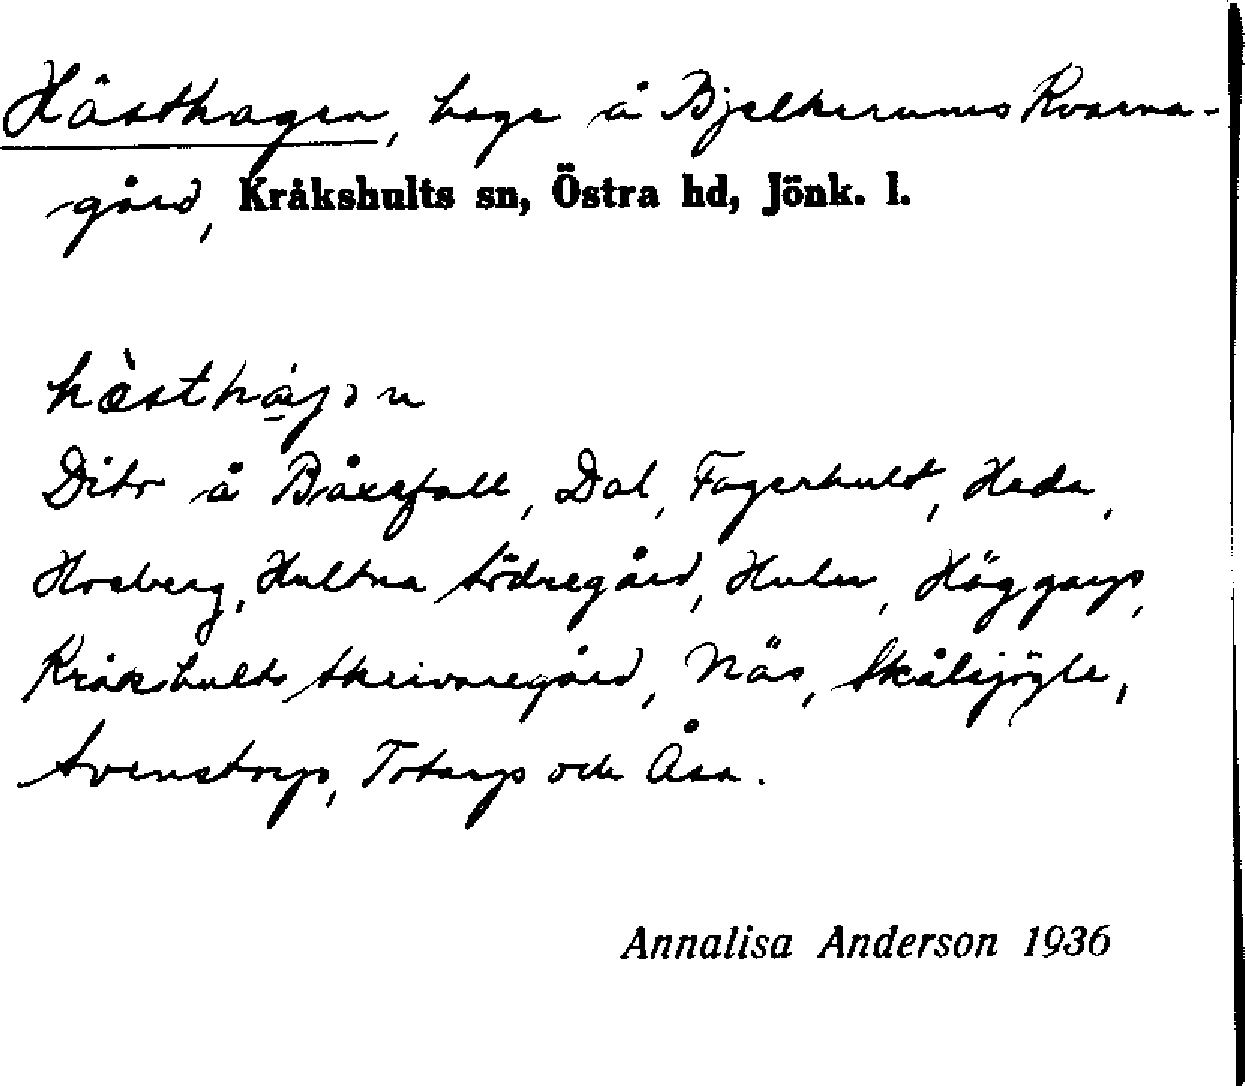 Hästhagen, hage å Bjelkerums Kvarna-
gård, Kråkshults sn, Östra hd, Jönk. l.
hàsthàgən
Dito å Båxefall, Dal, Fagerhult, Heda,
Hosberg, Hultna södregård, Hulu, Häggarp,
Kråkshults skrivaregård, Näs, Skålsjögle,
Svenstorp, Totarp och Åsa.
Annalisa Anderson 1936